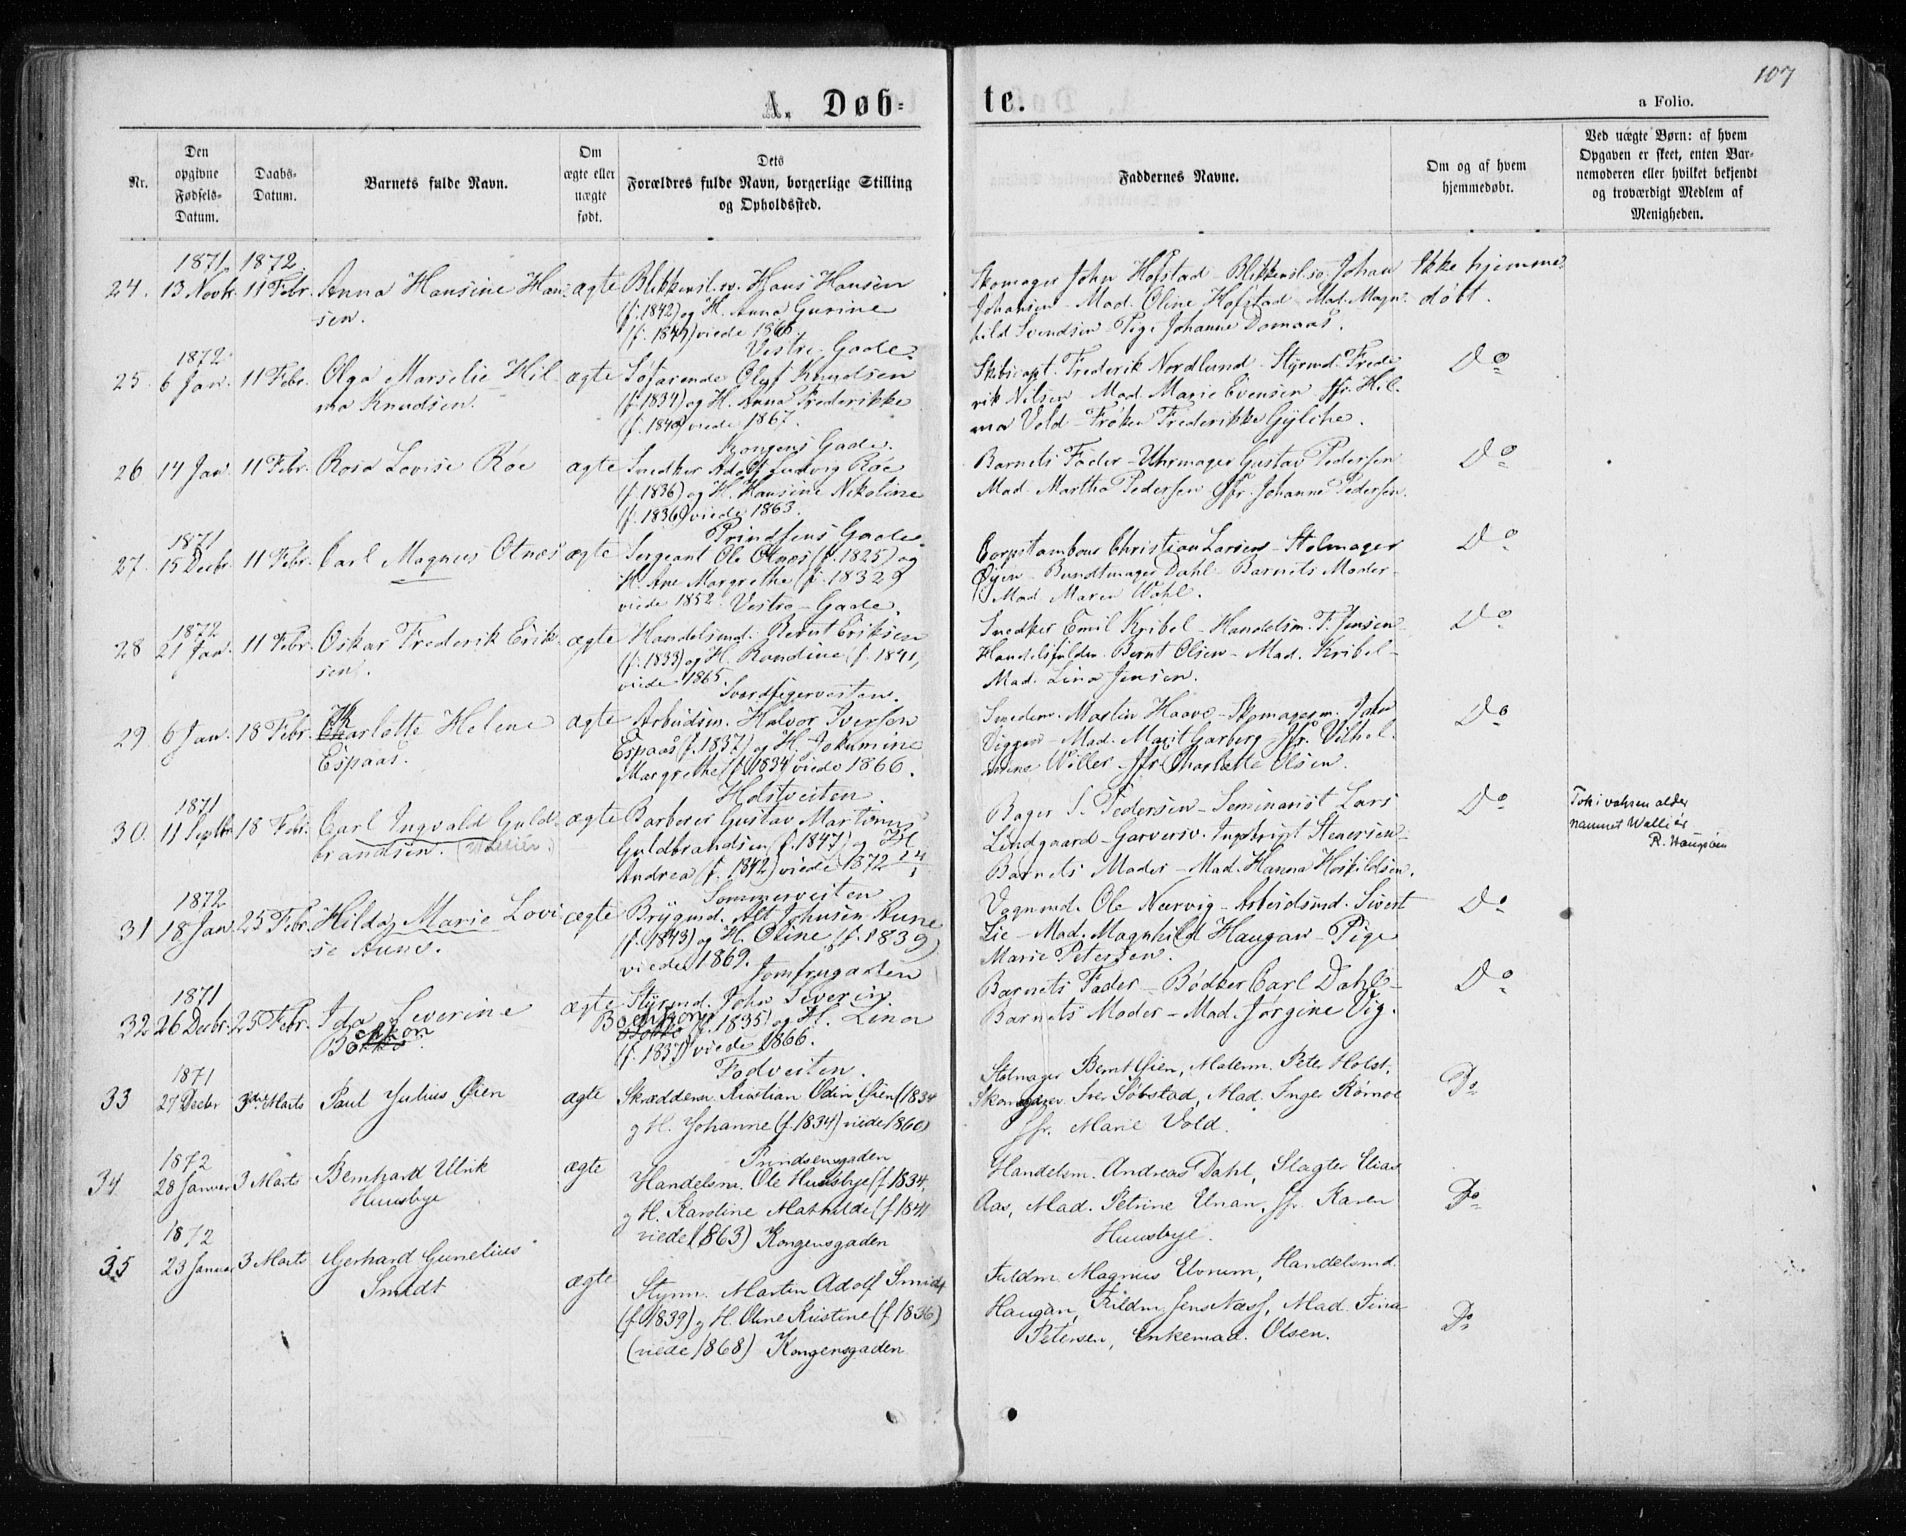 107
A. Døb-
te.
a Folio.
Nr.
Den
opgivne
Fødsels-
Datum.
Daabs-
Datum.
Barnets fulde Navn.
Om
ægte eller
uægte
født.
Dets
Forældres fulde Navn, borgerlige Stilling
og Opholdssted.
Faddernes Navne.
Om og af hvem
hjemmedøbt.
Ved uægte Børn: af hvem
Opgaven er skeet, enten Bar-
nemoderen eller hvilket bekjendt
og troværdigt Medlem af
Menigheden.
1871 1872
24. 13 Novbr. 11 Febr. Anna Hansine Han-
sen.
ægte
Blikkensl. sv. Hans Hansen
(f. 1842) og H. Anna Gurine
viede
Vestre-Gade.
Skomager John Hofstad - Blikkensl. sv. Johan
Johansen - Mad. Oline Hofstad - Mad. Magn-
hild Svendsen - Pige Johanne Domaas.
Ikke hjemme-
døbt.
1872
25. 6 Jan. 11 Febr. Olga Marselie Hil-
ma Knudsen.
ægte
Søfarende Oluf Knudsen
(f. 1834) og H. Anna Frederikke
viede 1867.
Kongens Gade.
Skibscapt. Frederik Nordlund - Styrmd. Frede-
rik Nilsen - Mad. Marie Evensen - Jfr. Hil-
ma Vold - Frøken Frederikke
Do
26 14 Jan. 11 Febr. Rosa Lovise Röe
ægte
Snedker Adolf Ludvig Röe
(f. 1836) og H. Hansine Nikoline
(f. 1836) viede 1863.
Prindsens Gade.
Barnets Fader - Uhrmager Gustav Pedersen
Mad. Martha Pedersen Jfr. Johanne Pedersen.
Do
1871
27. 15 Decbr. 11 Febr. Carl Magnus Otnæs
ægte
Sergeant Ole Otnæs (f. 1825) og
H. Ane Margrethe (f. 1832)
viede 1852. Vestre-Gade.
Corpstambour Christian Larsen - Stolmager
Øyen - Bundtmager Dahl - Barnets Moder -
Mad. Maren Wahl.
Do
1872
28 21 Jan. 11 Febr. Oskar Frederik Erik-
sen.
ægte
Handelsmd. Bernt Eriksen
(f. 1833) og H. Randine (f. 1841,
viede 1865.
Sværdfegerveiten.
Snedker Emil Kribel - Handelsm. F. Jensen
Bernt Olsen - Mad. Kribel -
Mad. Lina Jensen.
Do
29 6 Jan. 18 Febr. Charlotte Helene
Espaas.
ægte
Arbeidsm. Halvor Iversen
Espaas (f. 1837) og H. Jokumine
Margrethe (f. 1834 viede 1866.
Holstveiten.
Smedem. Martin Haave - Skomagerm. John
Viggen - Mad. Marit Garberg - Jfr. Vilhel-
mine Willer - Jfr. Charlotte Olsen.
Do
1871
30. 11 Septbr. 18 Febr. Carl Ingvald Guld-
brandsen. (Wallier.)
ægte
Barberer Gustav Martinus
Guldbrandsen (f. 1847) og H.
Andrea (f. 1842) viede 1872
Sommerveiten
Bager S. Pedersen - Seminarist Lars
Lindgaard - Garversv. Ingebrigt Stenersen -
Barnets Moder - Mad. Hanna
Do
Tok i voksen alder
navnet Wallier
1872
31 18 Jan. 25 Febr. Hilda Marie Lovi-
se Aune.
ægte
Brygmd. Alt Johnsen Aune
(f. 1843) og H. Oline (f. 1839)
viede 1869. Jomfrugaden
Vognmd. Ole Nervig - Arbeidsmd. Sivert
Lie - Mad. Magnhild Haugan - Pige
Marie Petersen.
Do
1871
32 26 Decbr. 25 Febr. Ida Severine
ægte
Styrmd. John Severin
(f. 1835) og H. Lina
(f. 1837) viede 1866.
Fodveiten.
Barnets Fader - Bødker Carl Dahl -
Barnets Moder - Mad. Jørgine Vig.
Do
1871
33 27 Decbr 3die Marts Paul Julius Øien
ægte
Skrædderm. Kristian Odin Øien (1834
og H. Johanne (f. 1834) viede 1860
Prindsensgaden
Stolmager Bernt Øien, Malerm. Peter Holst,
Skomager Iver Söbstad, Mad. Inger Römoe
Jfr. Marie Vold.
Do
1872
34 28 Januar 3 Marts Bernhard Ulrik
Huusbye
ægte
Handelsm. Ole Huusbye (f. 1834,
og H. Karoline Mathilde (f 1841
viede 1863) Kongensgaden
Handelsm. Andreas Dahl, Slagter Elias
Aas, Mad. Petrine Unan, Jfr. Karen
Huusbye.
Do
1872
35 23 Januar 3 Marts Gerhard Gunelius
Smidt
ægte
Styrm. Martin Adolf Smidt
(f. 1839) og H. Oline Kristine (f. 1836)
(viede 1868) Kongensgaden
Fuldm. Magnus Elvrum, Handelsmd.
Haugan, Fuldm. Jens Næss, Mad. Fina
Petersen, Enkemad. Olsen.
Do